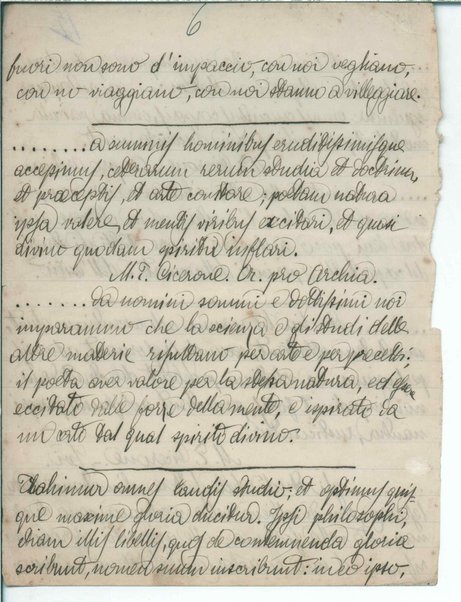 6
fuori non sono d'impaccio, con noi vegliano,
con noi viaggiano, con noi stanno a villeggiare.
........ a summis hominibus eruditissimisque
accepimus, ceterarum rerum studia et doctrina,
et præceptis, et arte constare; poetam natura
ipsa valere, et mentis viribus excitari, et quasi
divino quodam spiritu inflari.
M. T. Cicerone. Or. pro Archia.
........ da uomini sommi e dottissimi noi
imparammo che la scienza e gli studi delle
altre materie risultano per arte e per precetti:
il poeta aver valore per la stessa natura, ed
eccitato dalle forze della mente, e ispirato da
un certo tal qual spirito divino.
Trahimur omnes laudis studio, et optimus quis
que maxime gloria ducitur. Ipsi philosophi,
etiam illis libellis, quos de contemnenda gloria
scribunt, nomen suum inscribunt: in eo ipso,